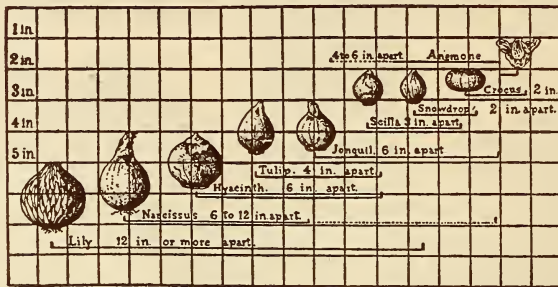 1 in.
2 in.
4 to 6 in. apart Anemone
3 in.
Crocus 2 in.
Snowdrop 2 in. apart.
Scilla 3 in. apart
4 in.
Jonquil. 6 in. apart
5 in.
Tulip. 4 in. apart.
Hyacinth. 6 in. apart.
Narcissus 6 to 12 in. apart.
Lily 12 in. or more apart.